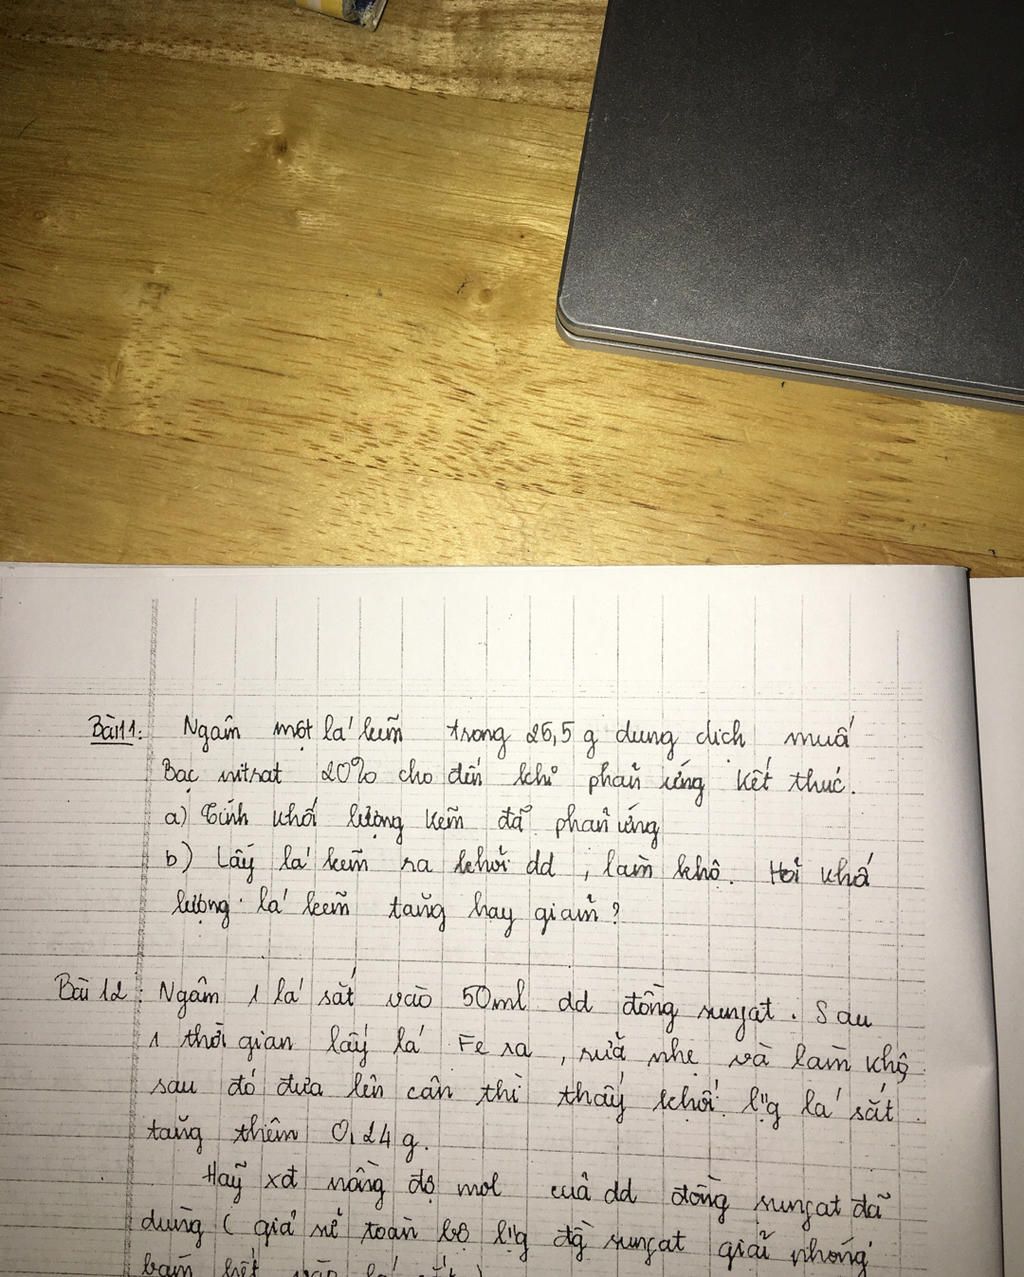 Bài 11: Ngâm một lá kẽm trong 25,5 g dung dịch muố
Bạc nitrat 20% cho đến khi phản ứng kết thúc.
a) Tính khối lượng kẽm đã phản ứng
b) Lấy lá kẽm ra khỏi dd, làm khô. Hỏi khố
lượng lá kẽm tăng hay giảm?
Bài 12: Ngâm 1 lá sắt vào 50ml dd đồng sunfat. Sau
1 thời gian lấy lá Fe ra, rửa nhẹ và làm khô
sau đó đưa lên cân thì thấy khối lg lá sắt
tăng thêm 0,24 g.
Hãy xđ nồng độ mol của dd đồng sunfat đã
dùng (giả sử toàn bộ lg đg sunfat giải phóng
bám hết vào lá sắt)